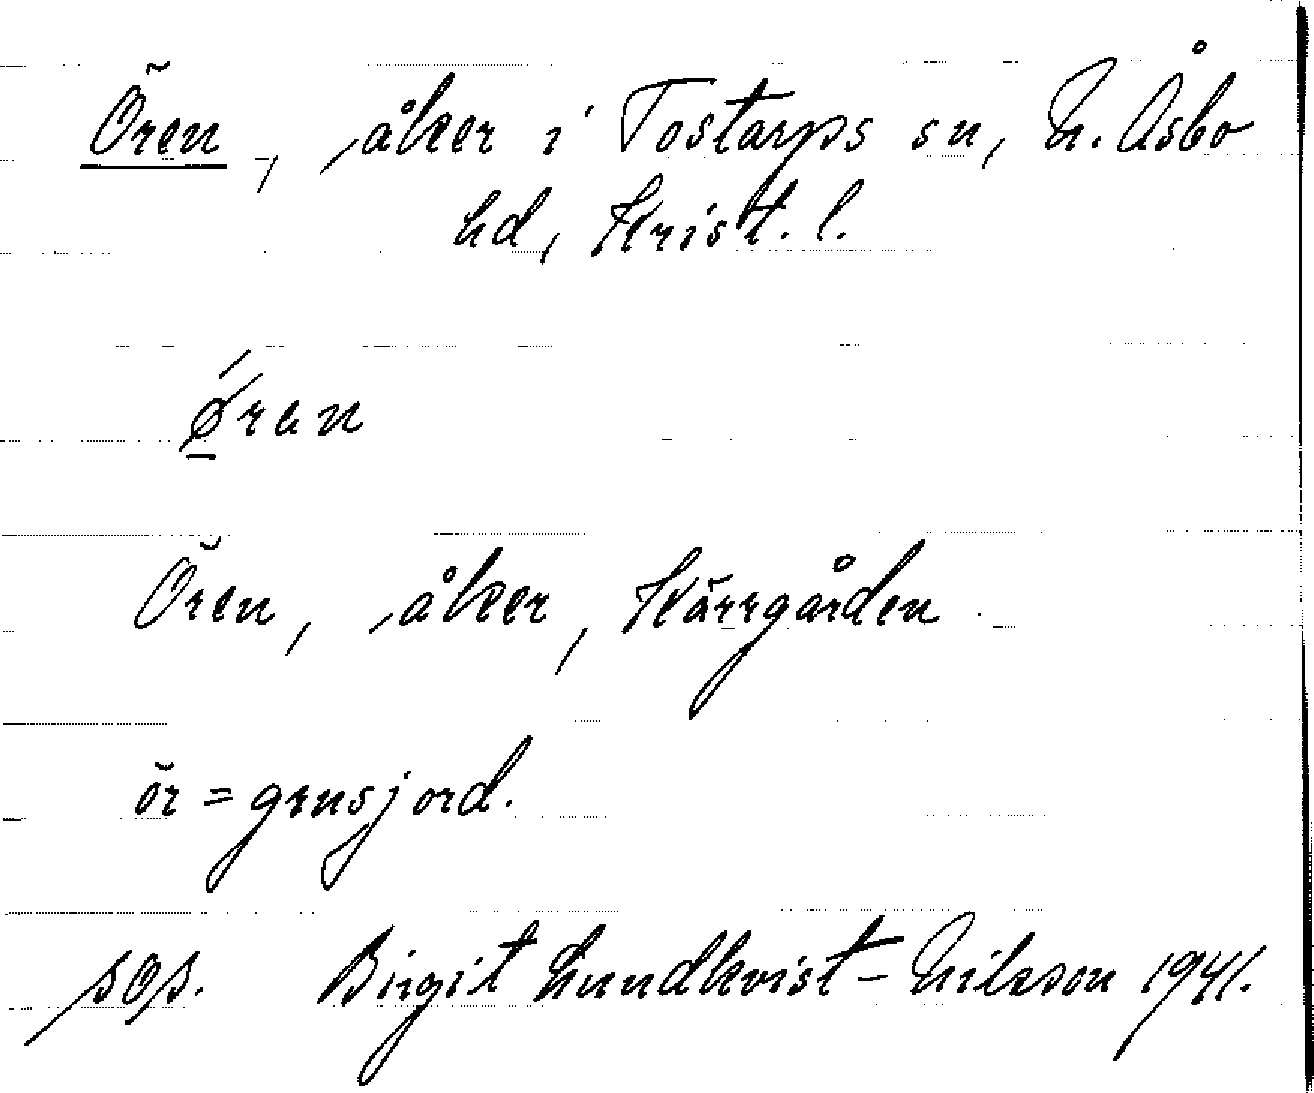 Ören, åker i Tostarps sn, N. Åsbo
hd, Krist. l.
ǿ̱ran
Ören, åker, Kärrgården
ör = grusjord.
sops. Birgit Lundkvist-Nilsson 1941.